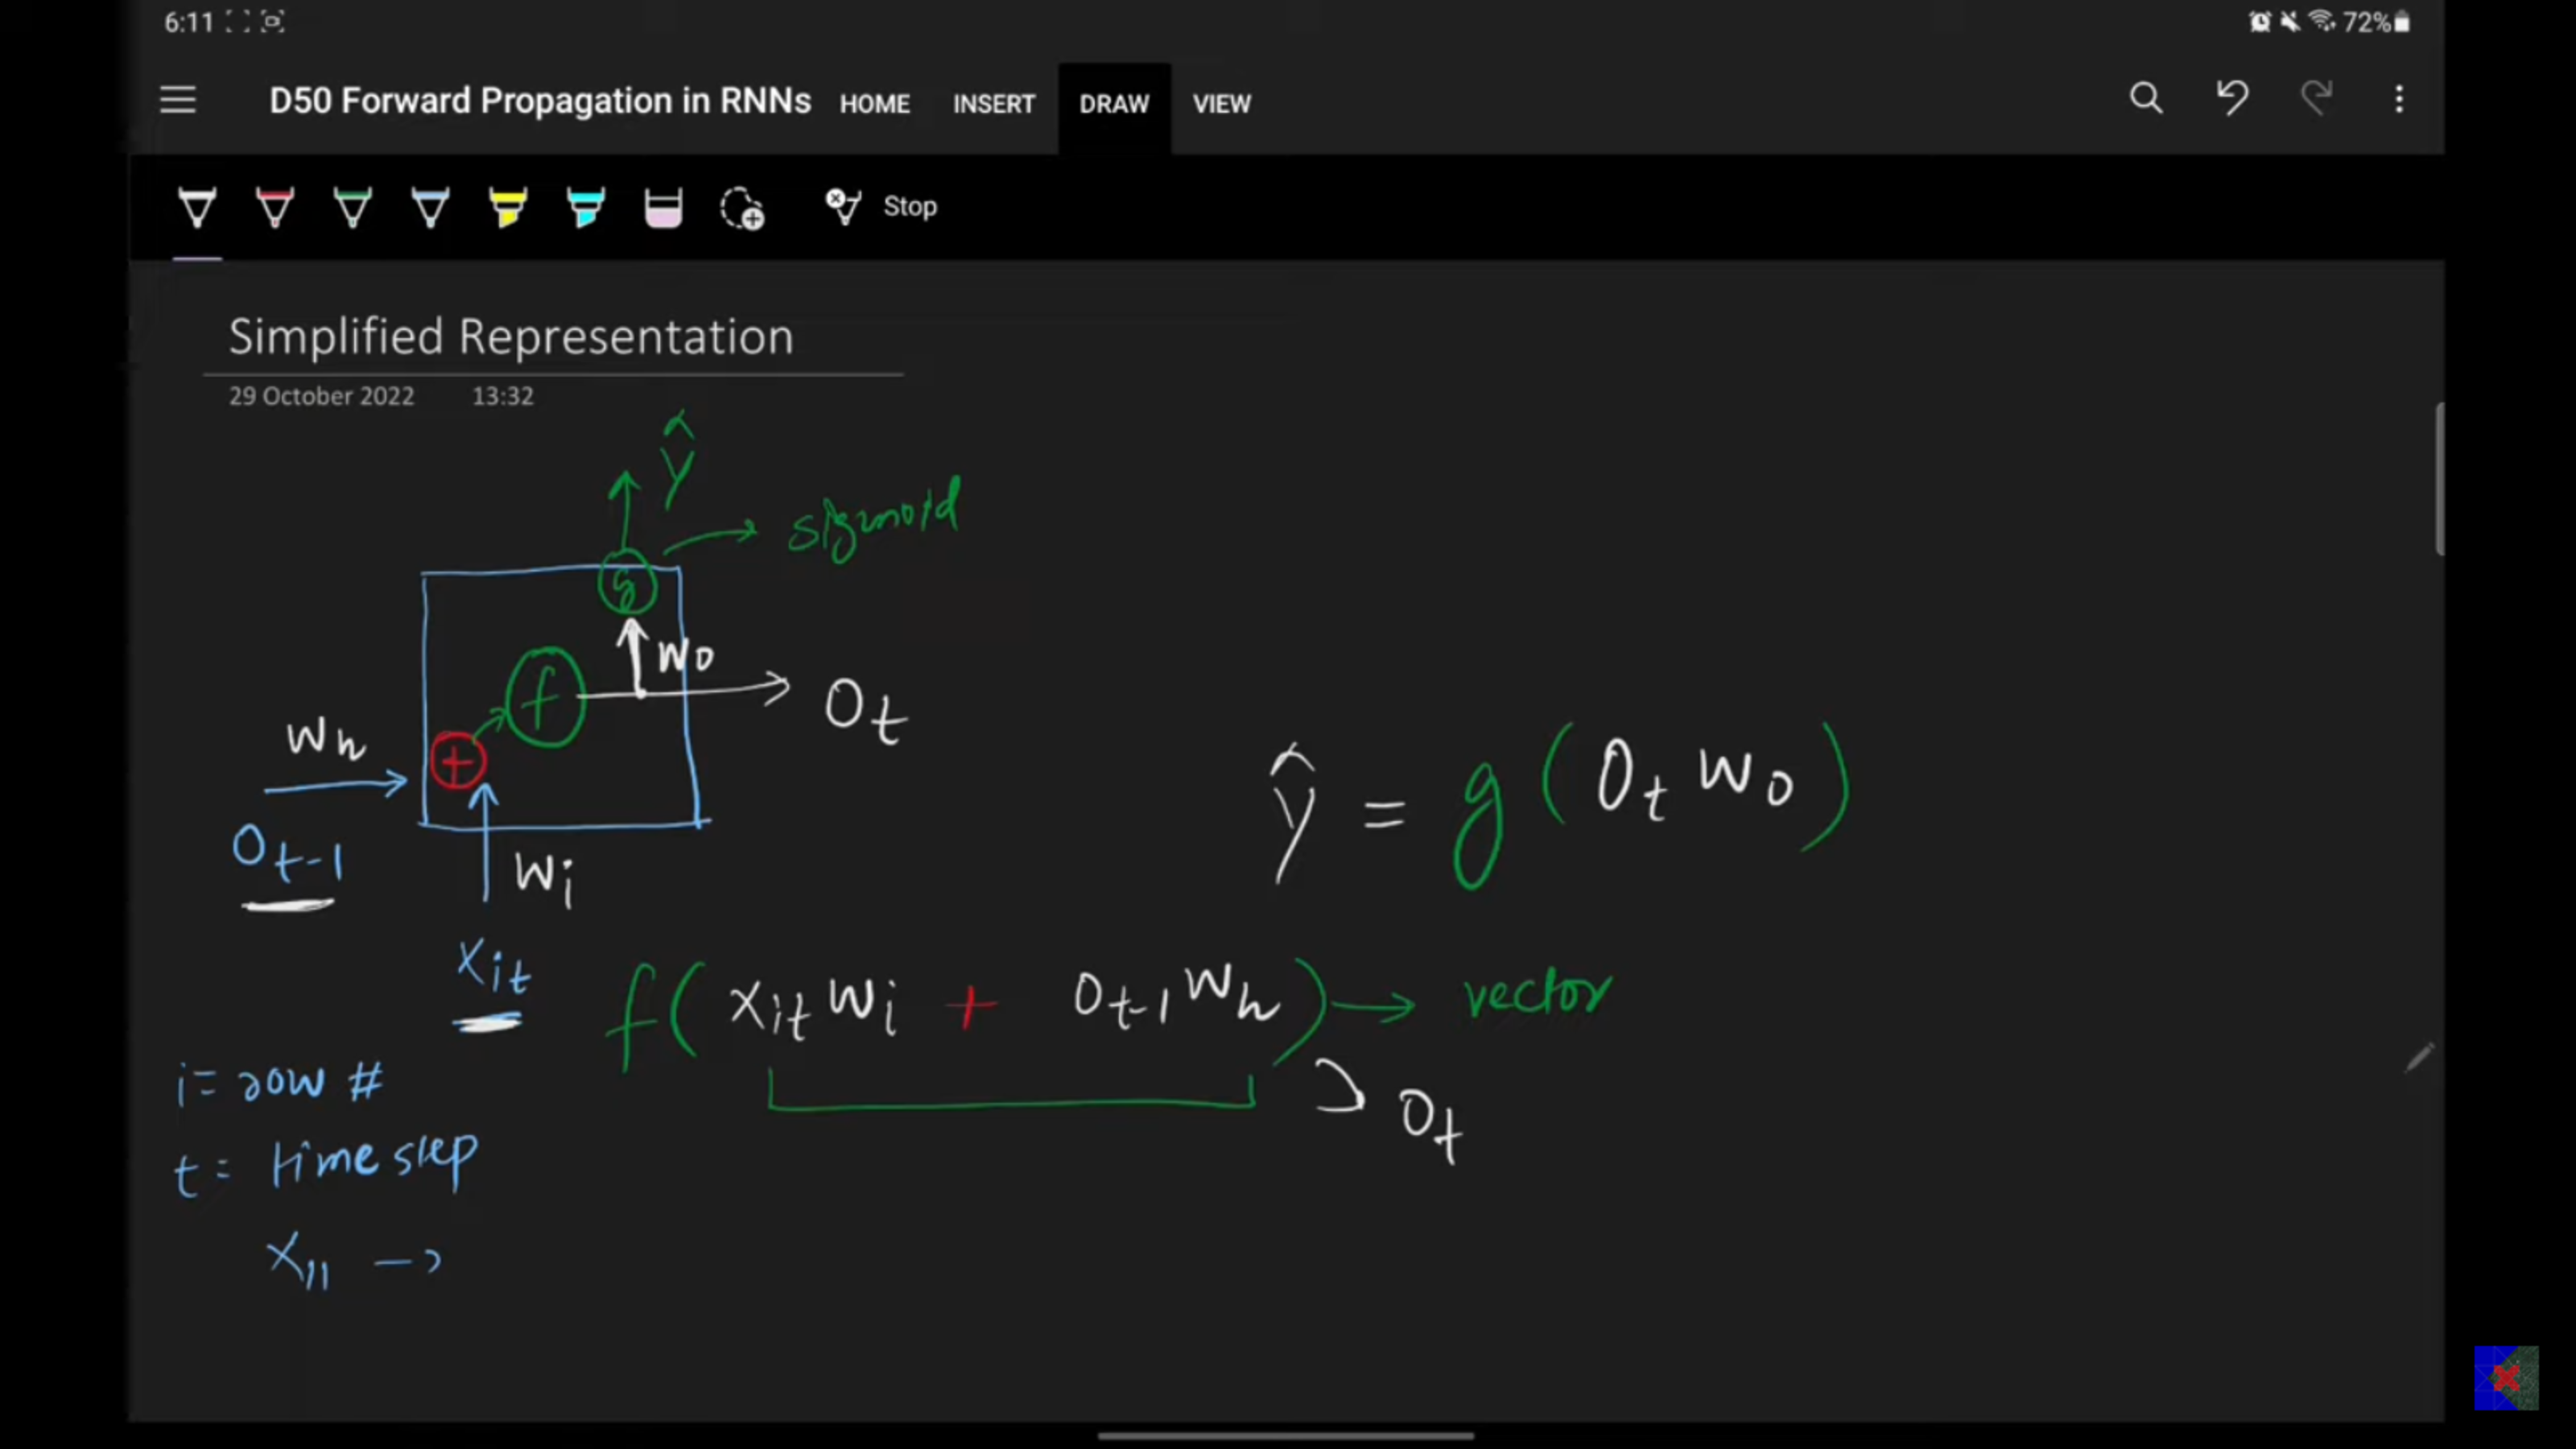 6:11 72%
D50 Forward Propagation in RNNs HOME INSERT DRAW VIEW
Stop
Simplified Representation
29 October 2022 13:32
ŷ
sigmoid
g
Wo
f
Ot
Wh
+
Ot-1
Wi
ŷ = g(Ot Wo)
Xit
f(Xit Wi + Ot-1 Wh) → vector
Ot
i = row #
t = time step
X11 →